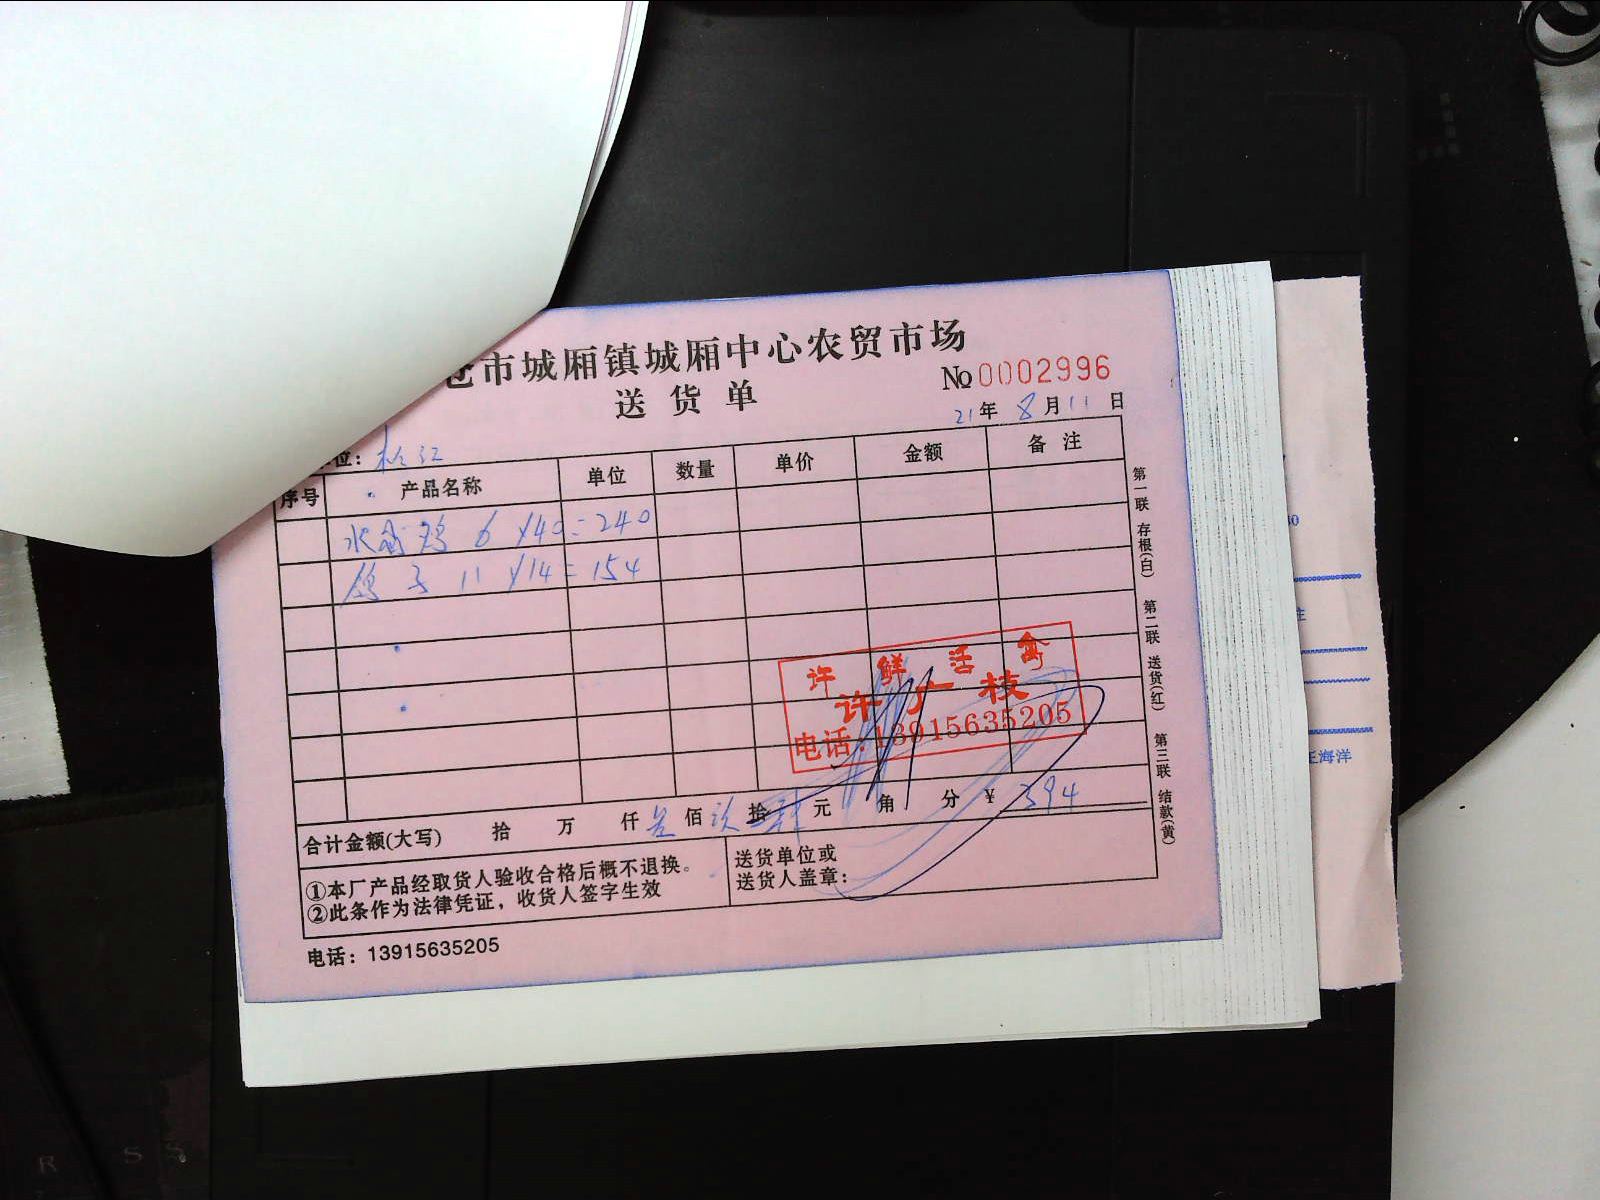 仓市城厢镇城厢中心农贸市场
送货单
No 0002996
21年 8月11日
位: 松江
序号 产品名称 单位 数量 单价 金额 备注
鸡 6 ×40=240
鸽子 11 ×14=154
许 鲜 活 禽
许广枝
电话:13915635205
合计金额(大写) 拾 万 仟 叁佰 玖拾 肆元 角 分 ¥ 394
①本厂产品经取货人验收合格后概不退换。
②此条作为法律凭证,收货人签字生效
送货单位或
送货人盖章:
电话:13915635205
第一联 存根(白) 第二联 送货(红) 第三联 结款(黄)
王海洋